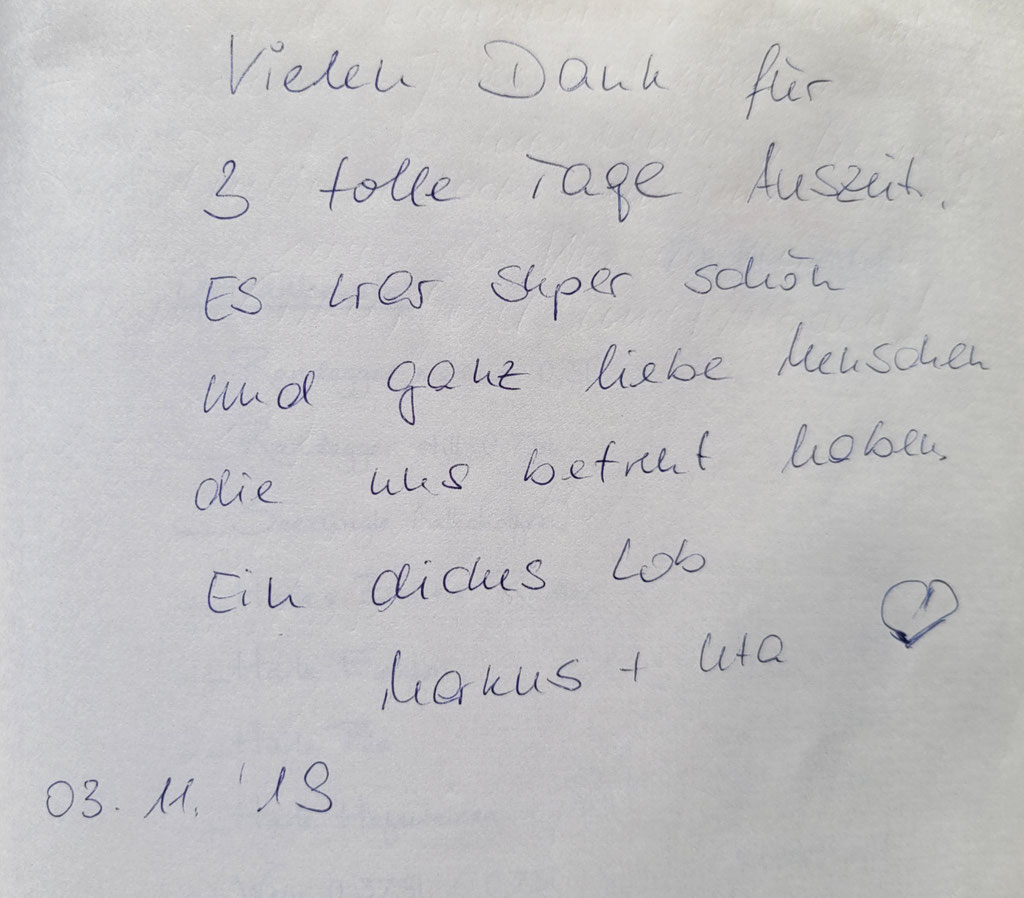 Vielen Dank für
3 tolle Tage Auszeit.
Es war super schön
und ganz liebe Menschen
die uns betreut haben.
Ein dickes Lob
Markus + Uta
03. 11. '19